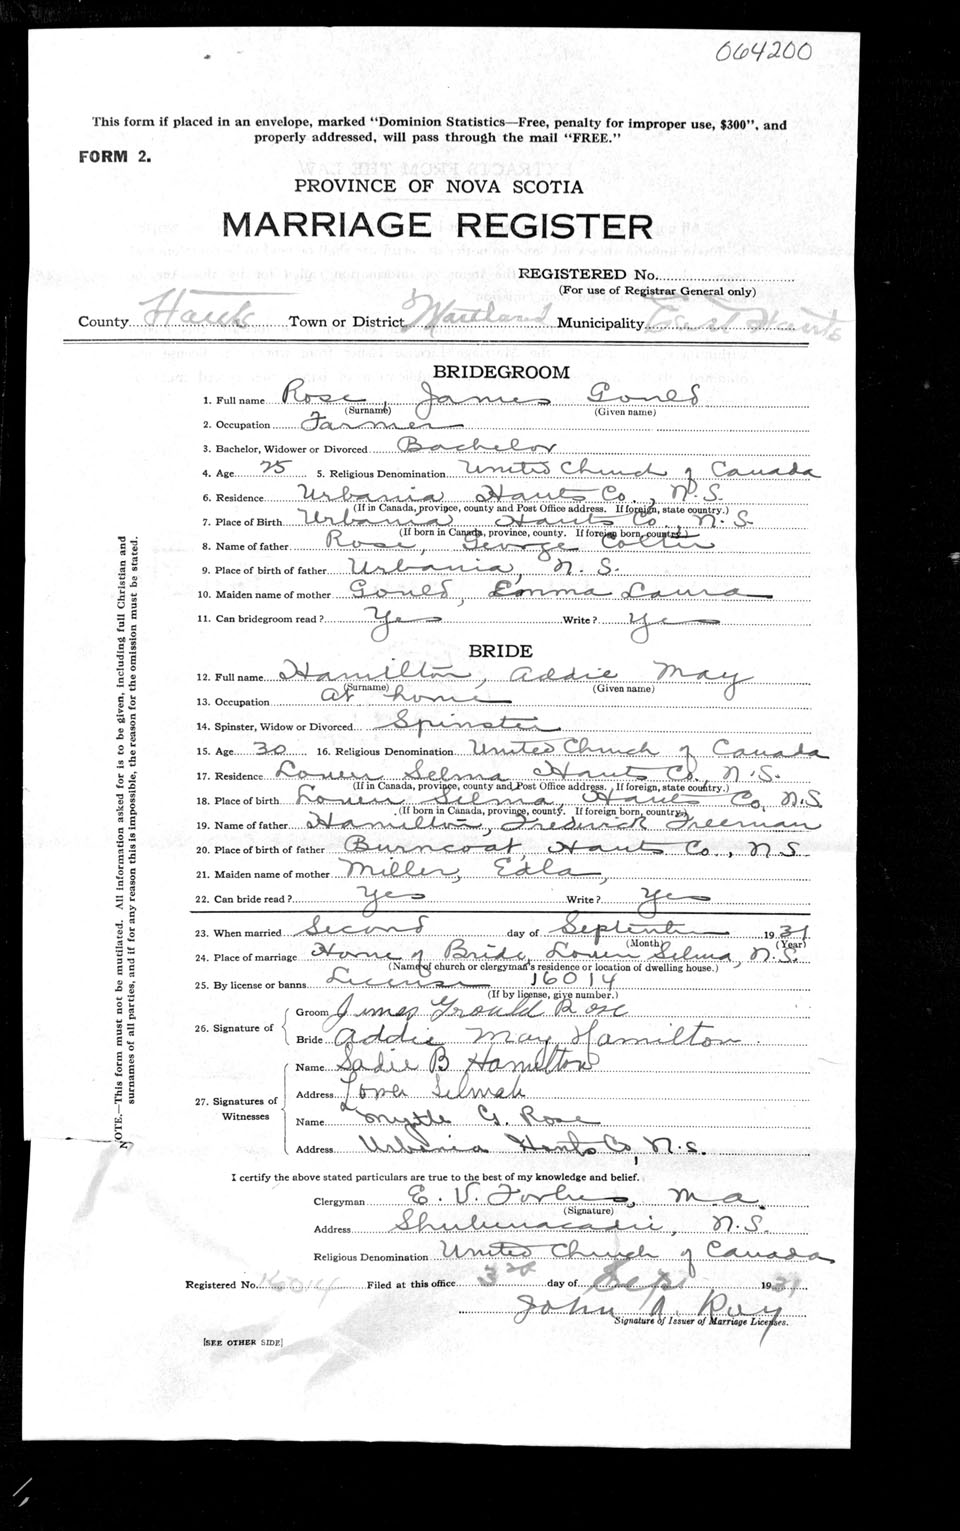 064200
This form if placed in an envelope, marked "Dominion Statistics—Free, penalty for improper use, $300", and
properly addressed, will pass through the mail "FREE."
FORM 2.
PROVINCE OF NOVA SCOTIA
MARRIAGE REGISTER
REGISTERED No.
(For use of Registrar General only)
County Hants Town or District Maitland Municipality East Hants
BRIDEGROOM
1. Full name Rose, James Gould
(Surname) (Given name)
2. Occupation Farmer
3. Bachelor, Widower or Divorced Bachelor
4. Age 25 5. Religious Denomination United Church of Canada
6. Residence Urbania Hants Co., N.S.
(If in Canada, province, county and Post Office address. If foreign, state country.)
7. Place of Birth Urbania Hants Co., N.S.
(If born in Canada, province, county. If foreign born, country.)
8. Name of father Rose, George Colter
9. Place of birth of father Urbania, N.S.
10. Maiden name of mother Gould, Emma Laura
11. Can bridegroom read? Yes Write? Yes
BRIDE
12. Full name Hamilton, Addie May
(Surname) (Given name)
13. Occupation at home
14. Spinster, Widow or Divorced Spinster
15. Age 30 16. Religious Denomination United Church of Canada
17. Residence Lower Selma Hants Co., N.S.
(If in Canada, province, county and Post Office address. If foreign, state country.)
18. Place of birth Lower Selma, Hants Co, N.S
(If born in Canada, province, county. If foreign born, country.)
19. Name of father Hamilton, Frederick Freeman
20. Place of birth of father Burncoat, Hants Co., N.S.
21. Maiden name of mother Miller, Edla,
22. Can bride read? Yes Write? Yes
23. When married Second day of September 1931
(Month) (Year)
24. Place of marriage Home of Bride, Lower Selma, N.S.
(Name of church or clergyman's residence or location of dwelling house.)
25. By license or banns License 16014
(If by license, give number.)
26. Signature of
Groom James Gould Rose
Bride Addie May Hamilton
27. Signatures of Witnesses
Name Sadie B Hamilton
Address Lower Selmah
Name Myrtle G. Rose
Address Urbania Hants Co, N.S.
I certify the above stated particulars are true to the best of my knowledge and belief.
Clergyman E. V. Forbes, M.A.
(Signature)
Address Shubenacadie, N.S.
Religious Denomination United Church of Canada
Registered No. 16014 Filed at this office 3rd day of Sep 1931
John A. Roy
Signature of Issuer of Marriage Licenses.
[SEE OTHER SIDE]
NOTE.—This form must not be mutilated. All information asked for is to be given, including full Christian and
surnames of all parties, and if for any reason this is impossible, the reason for the omission must be stated.